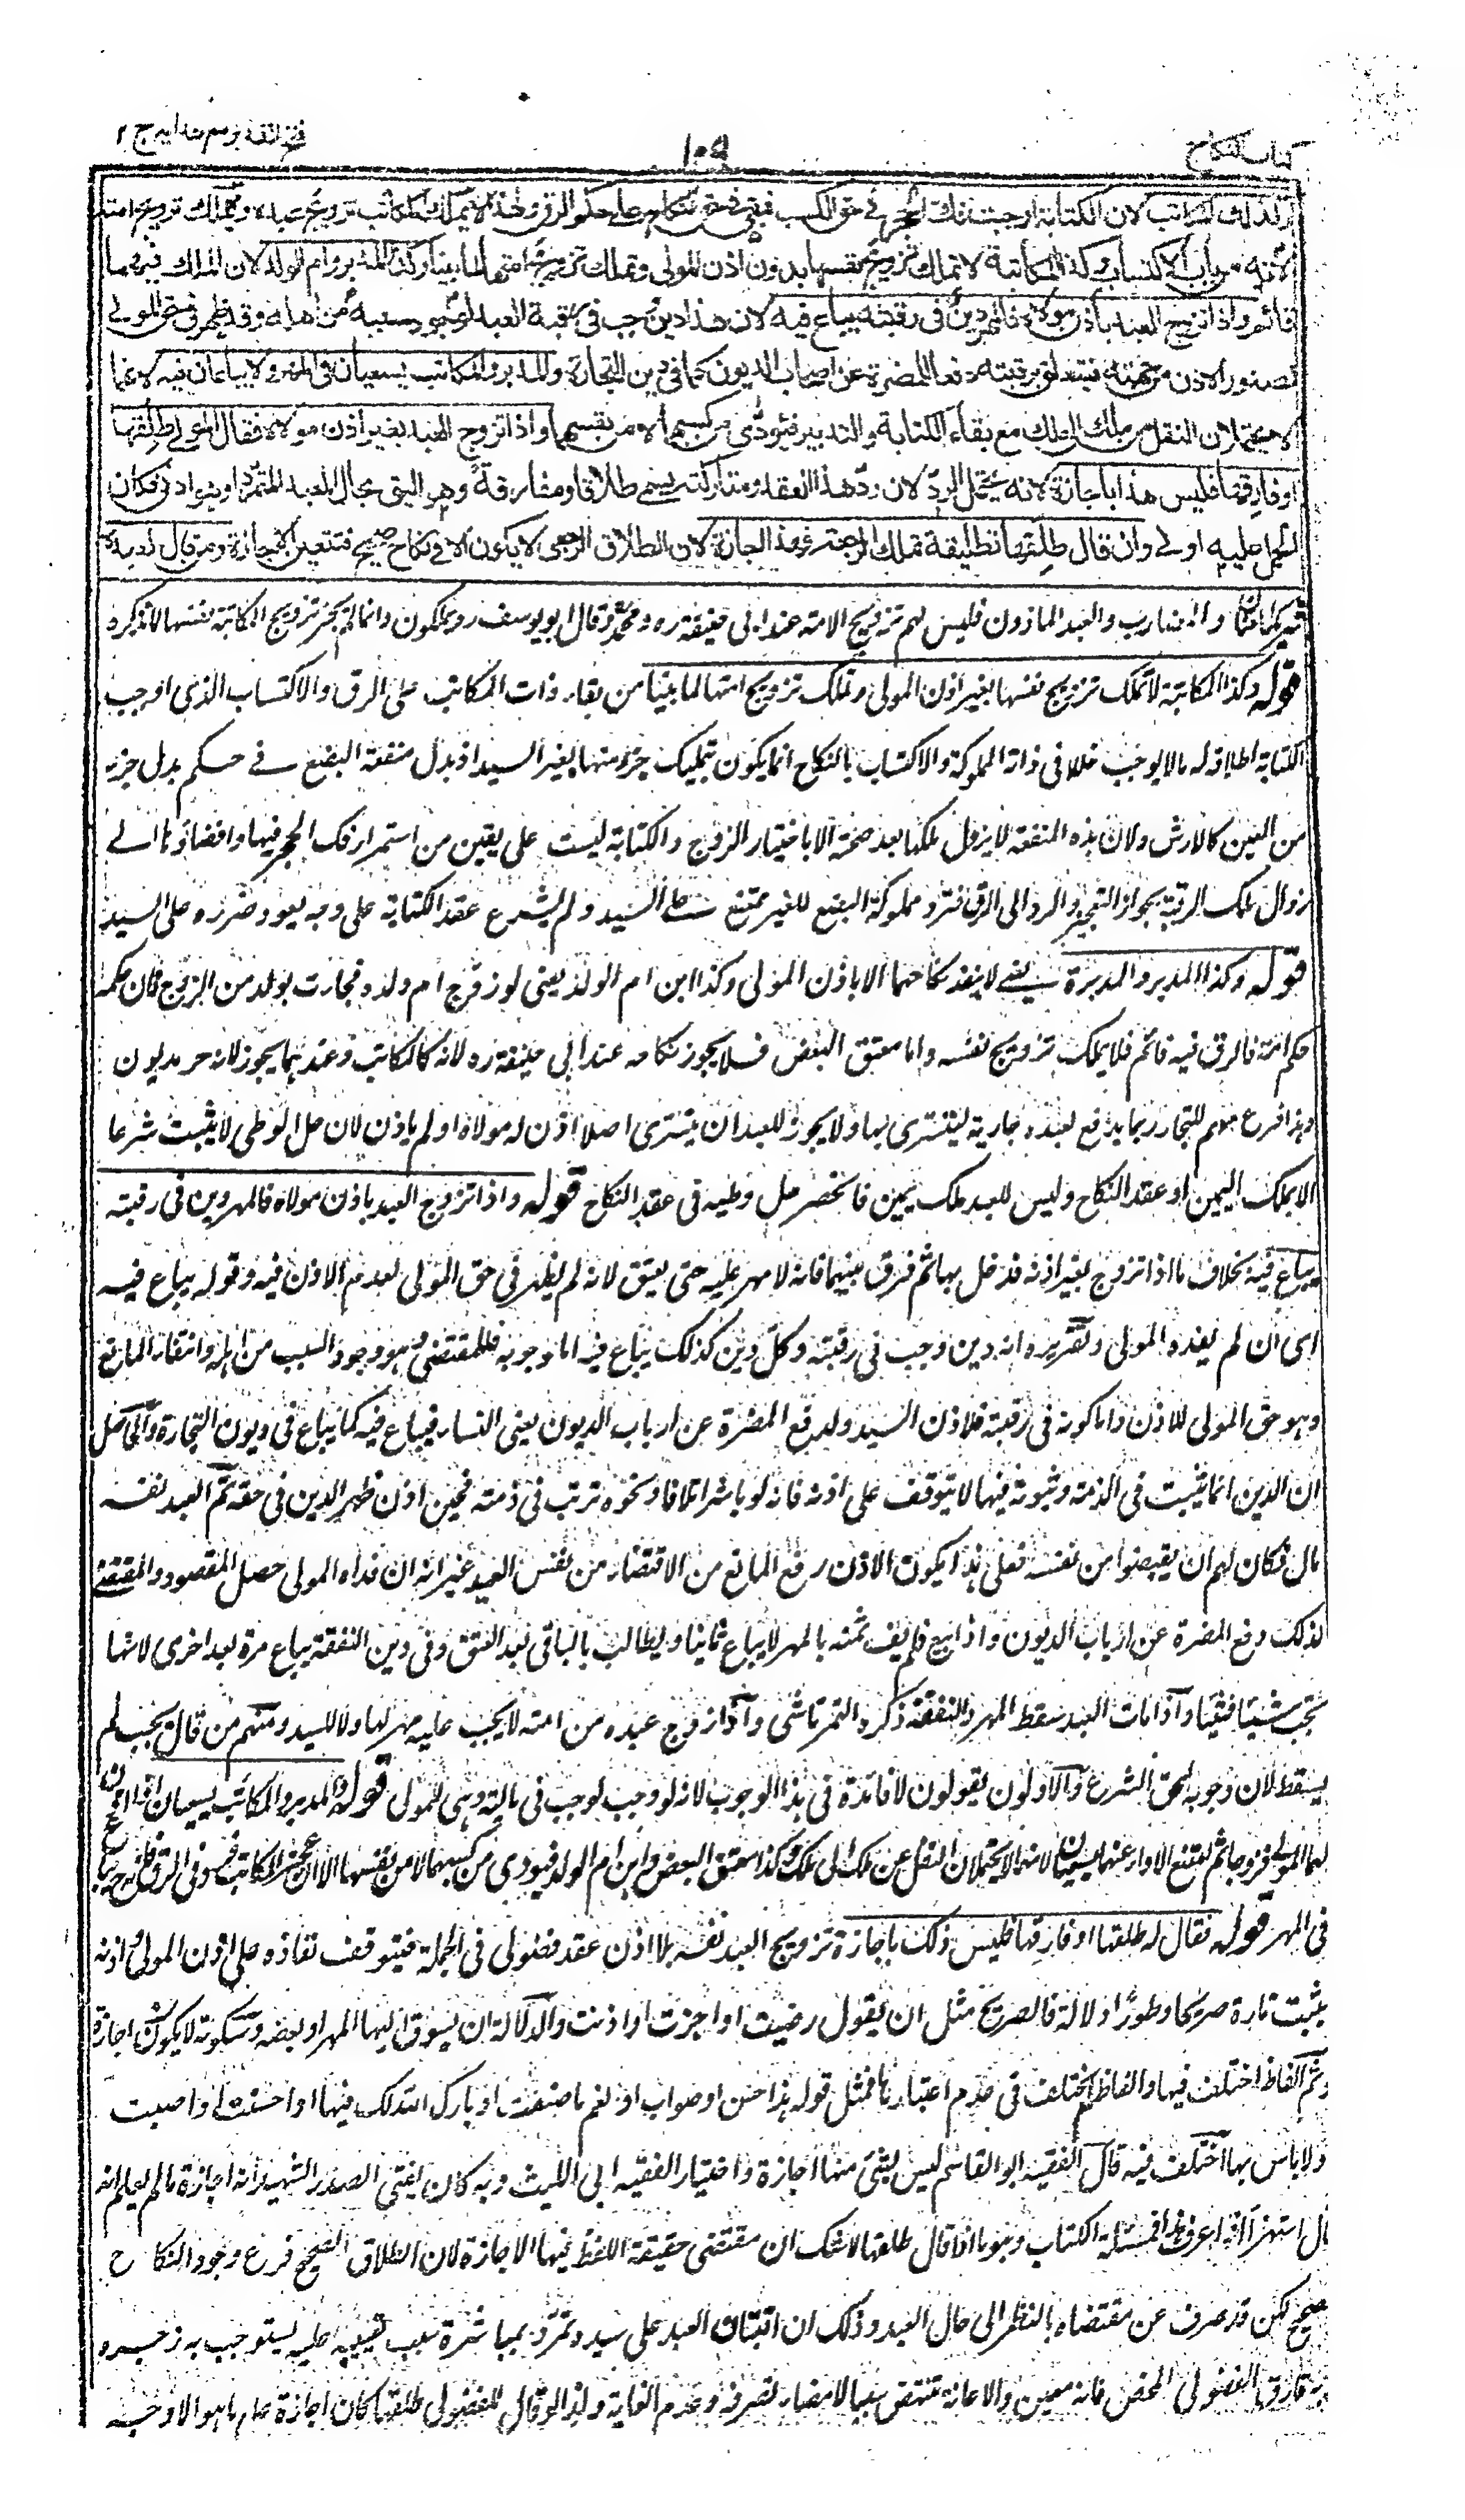 كتاب النكاح
فتح القدير مع هداية ج ٢
وكذلك المكاتب لان الكتابة اوجبت فك الحجر في حق الكسب فبقى في حق النكاح على حكم الرق ولهذا لا يملك المكاتب تزويج عبده ويملك تزويج امته
لانه من باب الاكتساب وكذا المكاتبة لا تملك تزويج نفسها بدون اذن المولى وتملك تزويج امتها لما بينا وكذا المدبر وام الولد لان الملك فيهما
قائم واذا تزوج العبد باذن مولاه فالمهر دين في رقبته يباع فيه لان هذا دين وجب في رقبة العبد لوجود سببه من اهله وقد ظهر في حق المولى
لصدور الاذن من جهته فيتعلق برقبته دفعا للمضرة عن اصحاب الديون كما في دين التجارة والمدبر والمكاتب يسعيان في المهر ولا يباعان فيه لانهما
لا يحتملان النقل من ملك الى ملك مع بقاء الكتابة والتدبير فيؤدى من كسبهما لا من نفسهما واذا تزوج العبد بغير اذن مولاه فقال المولى طلقها
او فارقها فليس هذا باجازة لانه يحتمل الرد لان رد هذا العقد ومتاركته يسمى طلاقا ومفارقة وهو اليق بحال العبد المتمرد او هو ادنى فكان
الحمل عليه اولى وان قال طلقها تطليقة تملك الرجعة فهذا اجازة لان الطلاق الرجعي لا يكون الا في نكاح صحيح فتتعين الاجازة ومن قال لعبده
والمضارب والعبد الماذون فليس لهم تزويج الامة عند ابى حنيفة ره ومحمد وقال ابو يوسف ره يملكون وانما لم يجز تزويج المكاتبة نفسها لما نذكره
قوله وكذا المكاتبة لا تملك تزويج نفسها بغير اذن المولى وتملك تزويج امتها لما بينا من بقاء ذات المكاتب على الرق والاكتساب الذى اوجب
الكتابة اطلاقه له مالا يوجب خللا في ذاته المملوكة والاكتساب بالنكاح انما يكون بتمليك جزء منها لغير السيد اذ بدل منفعة البضع في حكم بدل جزء
من العين كالارش ولان هذه المنفعة لا يزول ملكها بعد صحته الا باختيار الزوج والكتابة ليست على يقين من استمرار فك الحجر فيها وافضاؤها الى
زوال ملك الرقبة بجواز التعجيز والرد الى الرق فترد مملوكة البضع للغير ممتنع على السيد ولم يشرع عقد الكتابة على وجه يعود ضرره على السيد
قوله وكذا المدبر والمدبرة يعنى لا ينفذ نكاحهما الا باذن المولى وكذا ابن ام الولد يعنى لو زوج ام ولده فجاءت بولد من الزوج فان حكمه
حكم امه فالرق فيه قائم فلا يملك تزويج نفسه واما معتق البعض فلا يجوز نكاحه عند ابى حنيفة ره لانه كالمكاتب وعندهما يجوز لانه حر مديون
وهذا فرع مهم للتجار ربما يدفع لعبده جارية ليتسرى بها ولا يجوز للعبد ان يتسرى اصلا اذن له مولاه او لم ياذن لان حل الوطى لا يثبت شرعا
الا بملك اليمين او عقد النكاح وليس للعبد ملك يمين فانحصر حل وطيه في عقد النكاح قوله واذا تزوج العبد باذن مولاه فالمهر دين في رقبته
يباع فيه بخلاف ما اذا تزوج بغير اذنه فدخل بها ثم فرق بينهما فانه لا مهر عليه حتى يعتق لانه لم يظهر في حق المولى لعدم الاذن فيه وقوله يباع فيه
اى ان لم يفده المولى وتقريره انه دين وجب في رقبته وكل دين كذلك يباع فيه اما وجوبه فللمقتضى وهو وجود السبب من اهله وانتفاء المانع
وهو حق المولى للاذن واما كونه في رقبته فلاذن السيد ولدفع المضرة عن ارباب الديون يعنى النساء فيباع فيه كما يباع في ديون التجارة والحاصل
ان الدين انما يثبت في الذمة وثبوته فيها لا يتوقف على اذنه فانه لو باشر اتلافا ونحوه ترتب في ذمته فحين اذن ظهر الدين في حقه ثم العبد نفسه
مال فكان لهم ان يقبضوا من نفسه فعلى هذا يكون الاذن رفع المانع من الاقتضاء من نفس العبد غير انه ان فداه المولى حصل المقصود والمقتضى
لذلك دفع المضرة عن ارباب الديون واذا بيع فلم يف ثمنه بالمهر لا يباع ثانيا ويطالب بالباقي بعد العتق وفي دين النفقة يباع مرة بعد اخرى لانها
تجب شيئا فشيئا واذا مات العبد سقط المهر والنفقة ذكره التمرتاشى واذا زوج عبده من امته لا يجب عليه مهر لها ولا للسيد ومنهم من قال يجب ثم
يسقط لان وجوبه لحق الشرع والاولون يقولون لا فائدة في هذا الوجوب لانه لو وجب لوجب في ماليته وهى للمولى قوله والمدبر والمكاتب يسعيان
لانهما لا يحتملان النقل عن ملك الى ملك وكذا معتق البعض وابن ام الولد فيودى من كسبهما لا من نفسهما الا ان عجز المكاتب
في المهر قوله فقال له طلقها او فارقها فليس ذلك باجازة تزويج العبد نفسه بلا اذن عقد فضولى في الجملة فيتوقف نفاذه على اذن المولى واذنه
يثبت تارة صريحا وطورا دلالة فالصريح مثل ان يقول رضيت او اجزت او اذنت والدلالة ان يسوق اليها المهر او بعضه وسكوته لا يكون اجازة
وثم الفاظ اختلف فيها والفاظ لم يختلف في عدم اعتبارها فمثل قوله هذا حسن او صواب او نعم ما صنعت او بارك الله لك فيها او احسنت او اصبت
ولا باس بها اختلف فيه قال الفقيه ابو القاسم ليس بشئ منها اجازة واختيار الفقيه ابى الليث وبه كان يفتى الصدر الشهيد انه اجازة ما لم يعلم انه
قال استهزاء اذا عرف هذا فمسئلة الكتاب وهو ما اذا قال طلقها لا شك ان مقتضى حقيقة اللفظ فيها الاجازة لان الطلاق الصحيح فرع وجود النكاح
الصحيح لكن قد صرف عن مقتضاه بالنظر الى حال العبد وذلك ان افتيات العبد على سيده وتمرده بمباشرة سبب تعييبه عليه يستوجب به زجره
وبه فارق الفضولى المحض فانه معين والاعانة تنتهض سببا لامضاء تصرفه وعدم الغائه ولذا لو قال للفضولى طلقها كان اجازة على ما هو الاوجه